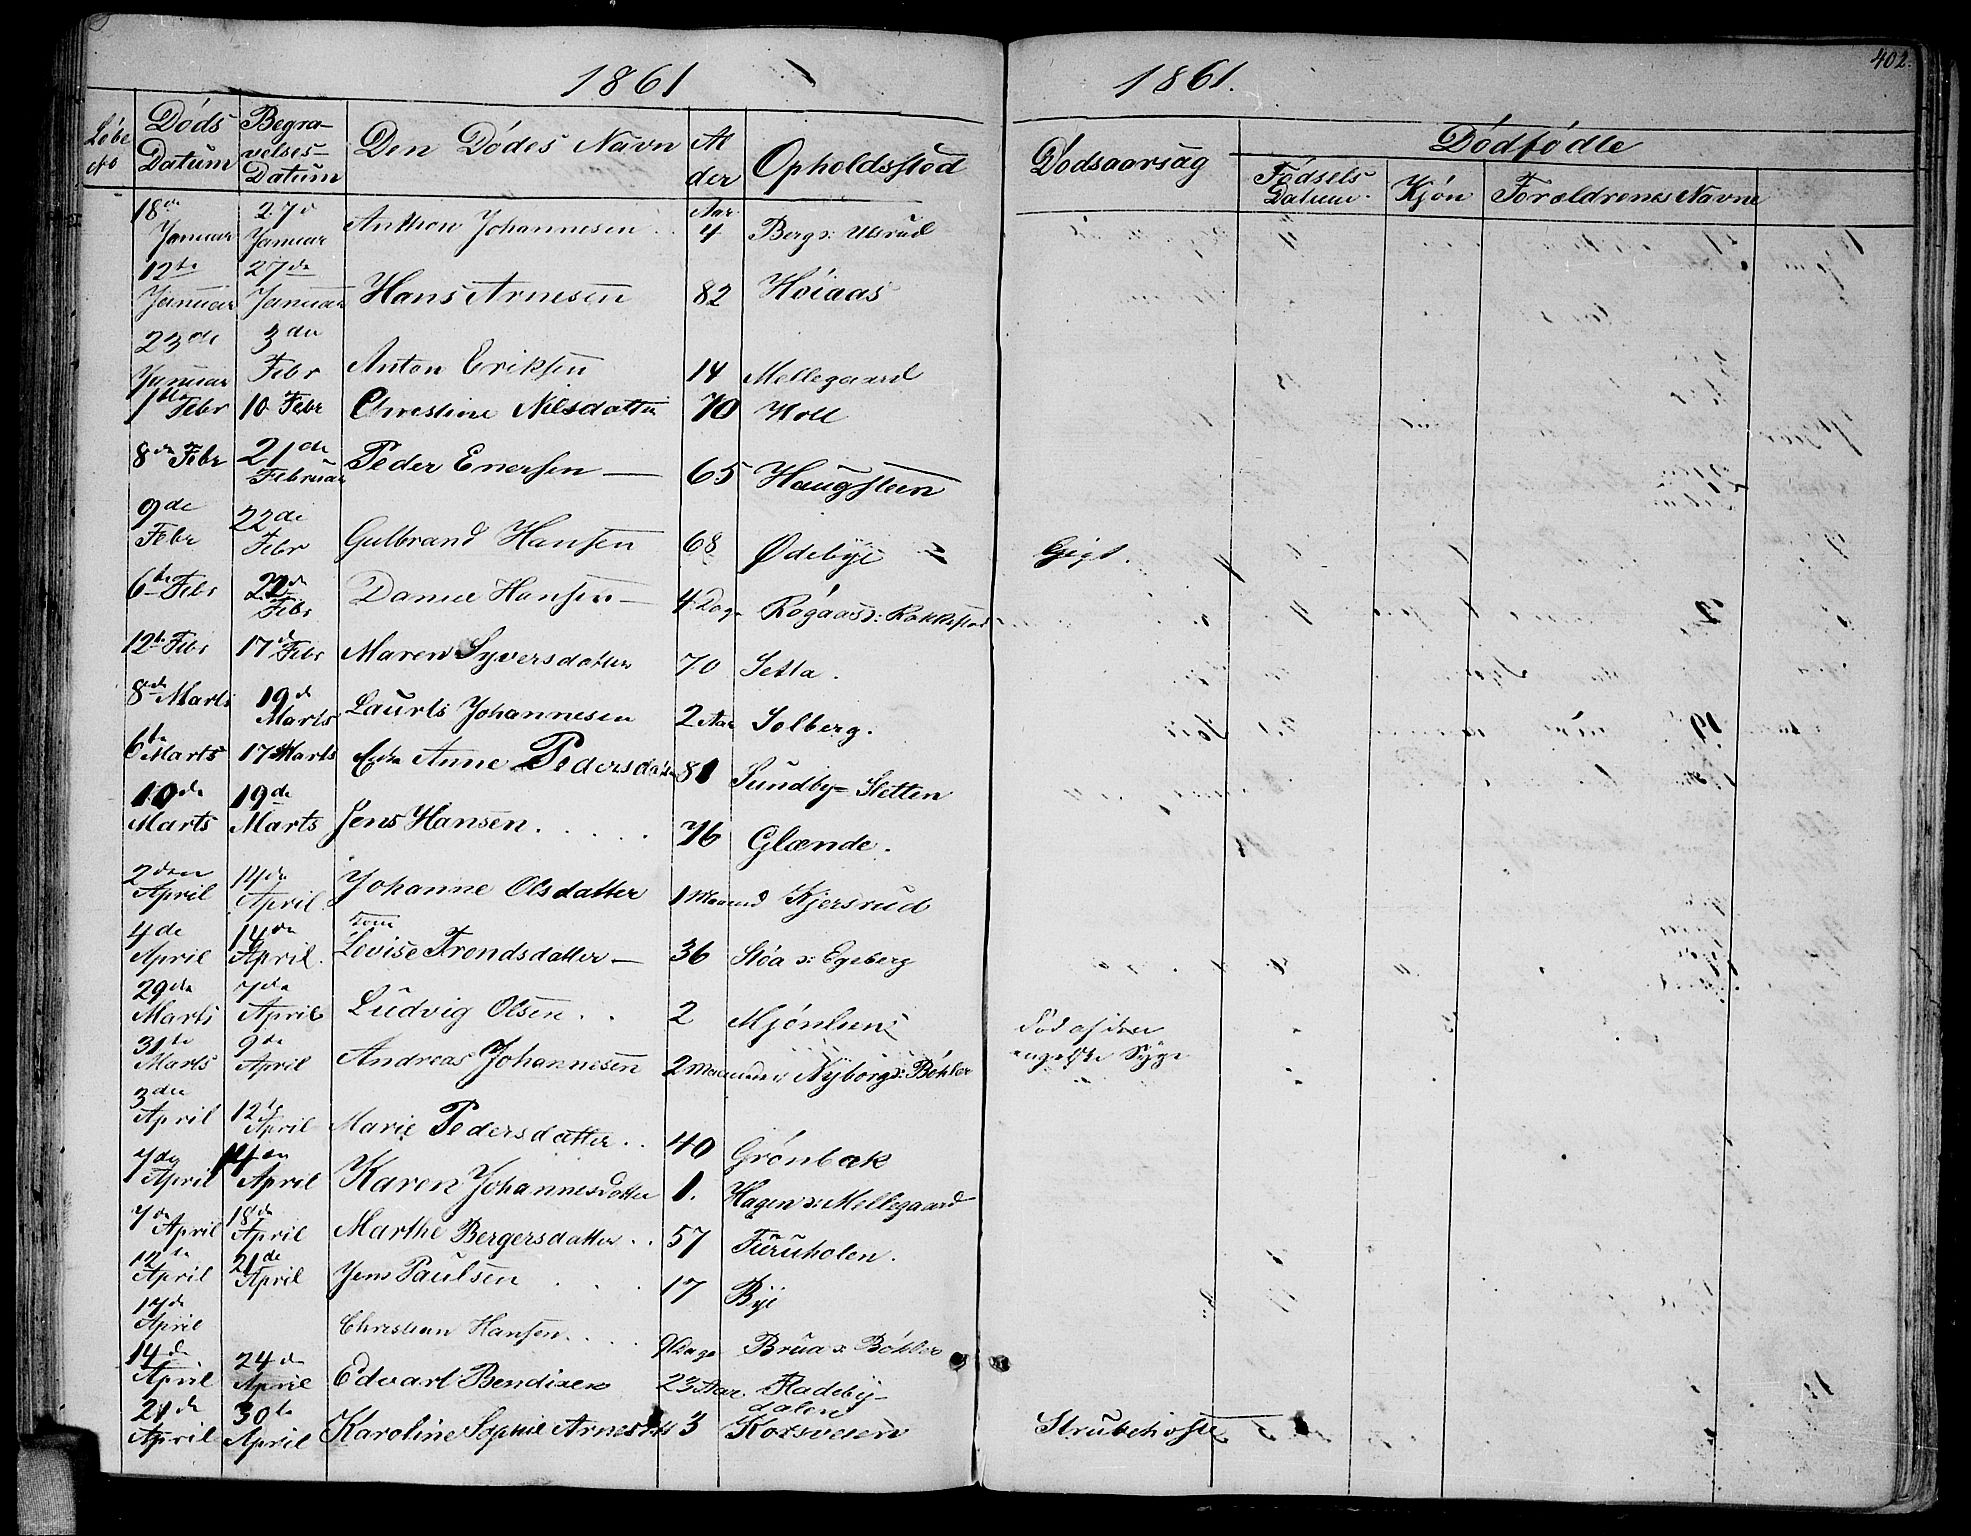 1861
1861.
402.
Løbe No Døds Datum Begravelses-Datum Den Dødes Navn Alder Opholdssted Dødsaarsag Dødfødte
Fødsels Datum Kjøn Forældrenes Navne
18de Januar 27de Januar Anthon Johannesen Aar 4 Berg s: Ulsrud
12te Januar 27de Januar Hans Arnesen 82 Høiaas
23de Januar 3die Febr Anton Eriksen 14 Mellegaard
1ste Febr 10 Febr Christine Nilsdatter 70 Holl
8de Febr 21de Februar Peder Enersen — 65 Haugsteen
9de Febr 22de Febr Gulbrand Hansen 68 Ødebye Gigt.
6te Febr 22de Febr Hansen — 4 Dage Røgaas s: Rakkestad
12te Febr 17de Febr Maren Syversdatter 70 Setta.
8de Marts 19de Marts Laurts Johannesen 2 Aar Solberg.
6te Marts 17 Marts Enke Anne Pedersdatter 81 Sundby- Sletten
10de Marts 19de Marts Jens Hansen. 76 Glænde.
2den April 14de April Johanne Olsdatter 1 Maaned Kjersrud
4de April 14de April. Kone Lovise Trondsdatter — 36 Støa s: Egeberg
29de Marts 7de April Ludvig Olsen. 2 Mjønlien Død af den
31te Marts 9de April Andreas Johannesen 2 Maaneder Nyborg s: Bøhler engelske Syge
3die April 12te April Marie Pedersdatter. 40 Grønbæk
7de April 14de April Karen Johannesdatter 1. Hagen s: Mellegaard
7de April 18de April Marthe Bergersdatter. 57 Furuholen.
12te April 21de April Jens Paulsen 17 Bye
17de April Christian Hansen. Dage Brua s: Bøhler
14de April 24de April Edvart Bendixen 23 Aar. Fladeby-
dalen
21de April 30te April Karoline Sophie Arnesd 3 Korsveien Strubehoste